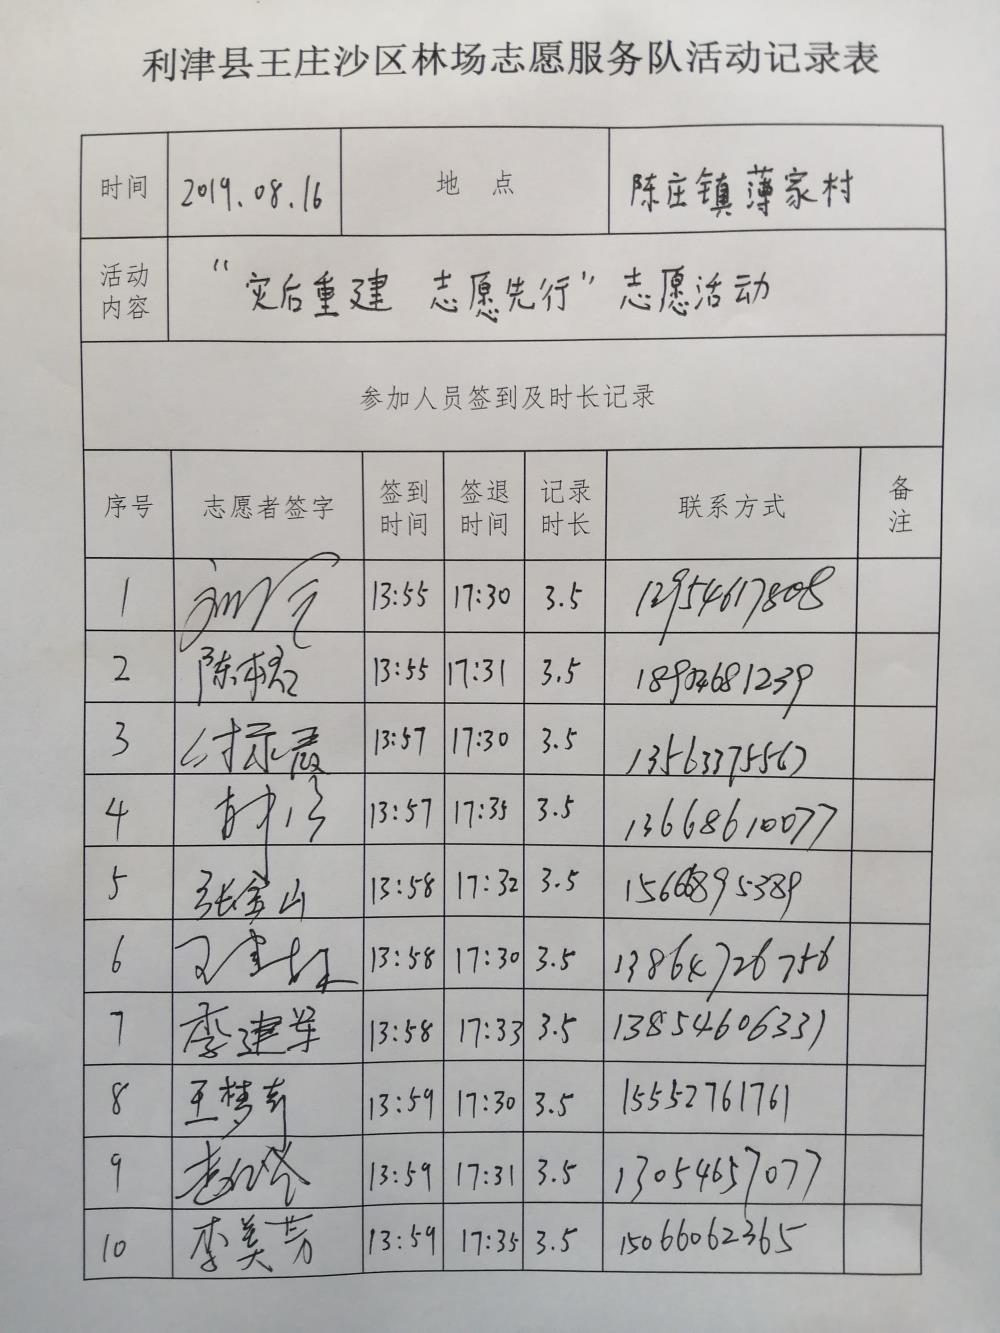 利津县王庄沙区林场志愿服务队活动记录表
时间 2019.08.16 地 点 陈庄镇薄家村
活动内容 “灾后重建 志愿先行”志愿活动
参加人员签到及时长记录
序号 志愿者签字 签到时间 签退时间 记录时长 联系方式 备注
1 13:55 17:30 3.5
2 13:55 17:31 3.5 18904681239
3 13:57 17:30 3.5 13563375567
4 13:57 17:35 3.5 13668610077
5 张金山 13:58 17:32 3.5 15666895389
6 13:58 17:30 3.5 13864726756
7 李建军 13:58 17:33 3.5 13854606331
8 王梦奇 13:59 17:30 3.5 15552761761
9 13:59 17:31 3.5 13054657077
10 李美芳 13:59 17:35 3.5 15066062365